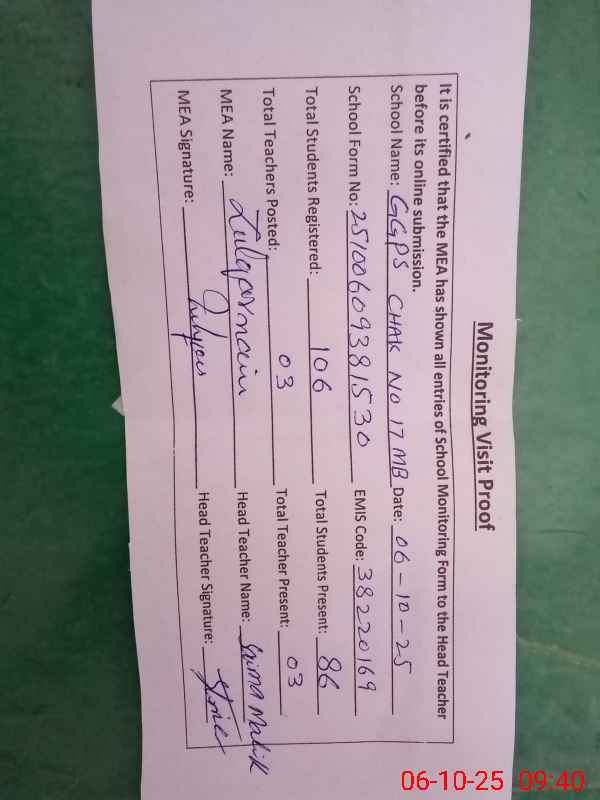 Monitoring Visit Proof
It is certified that the MEA has shown all entries of School Monitoring Form to the Head Teacher
before its online submission.
School Name: GGPS CHAK NO 17 MB Date: 06-10-25
School Form No: 25100609381530 EMIS Code: 38220169
Total Students Registered: 106 Total Students Present: 86
Total Teachers Posted: 03 Total Teacher Present: 03
MEA Name: Zulqarnain Head Teacher Name: Saima Malik
MEA Signature: Head Teacher Signature:
06-10-25 09:40